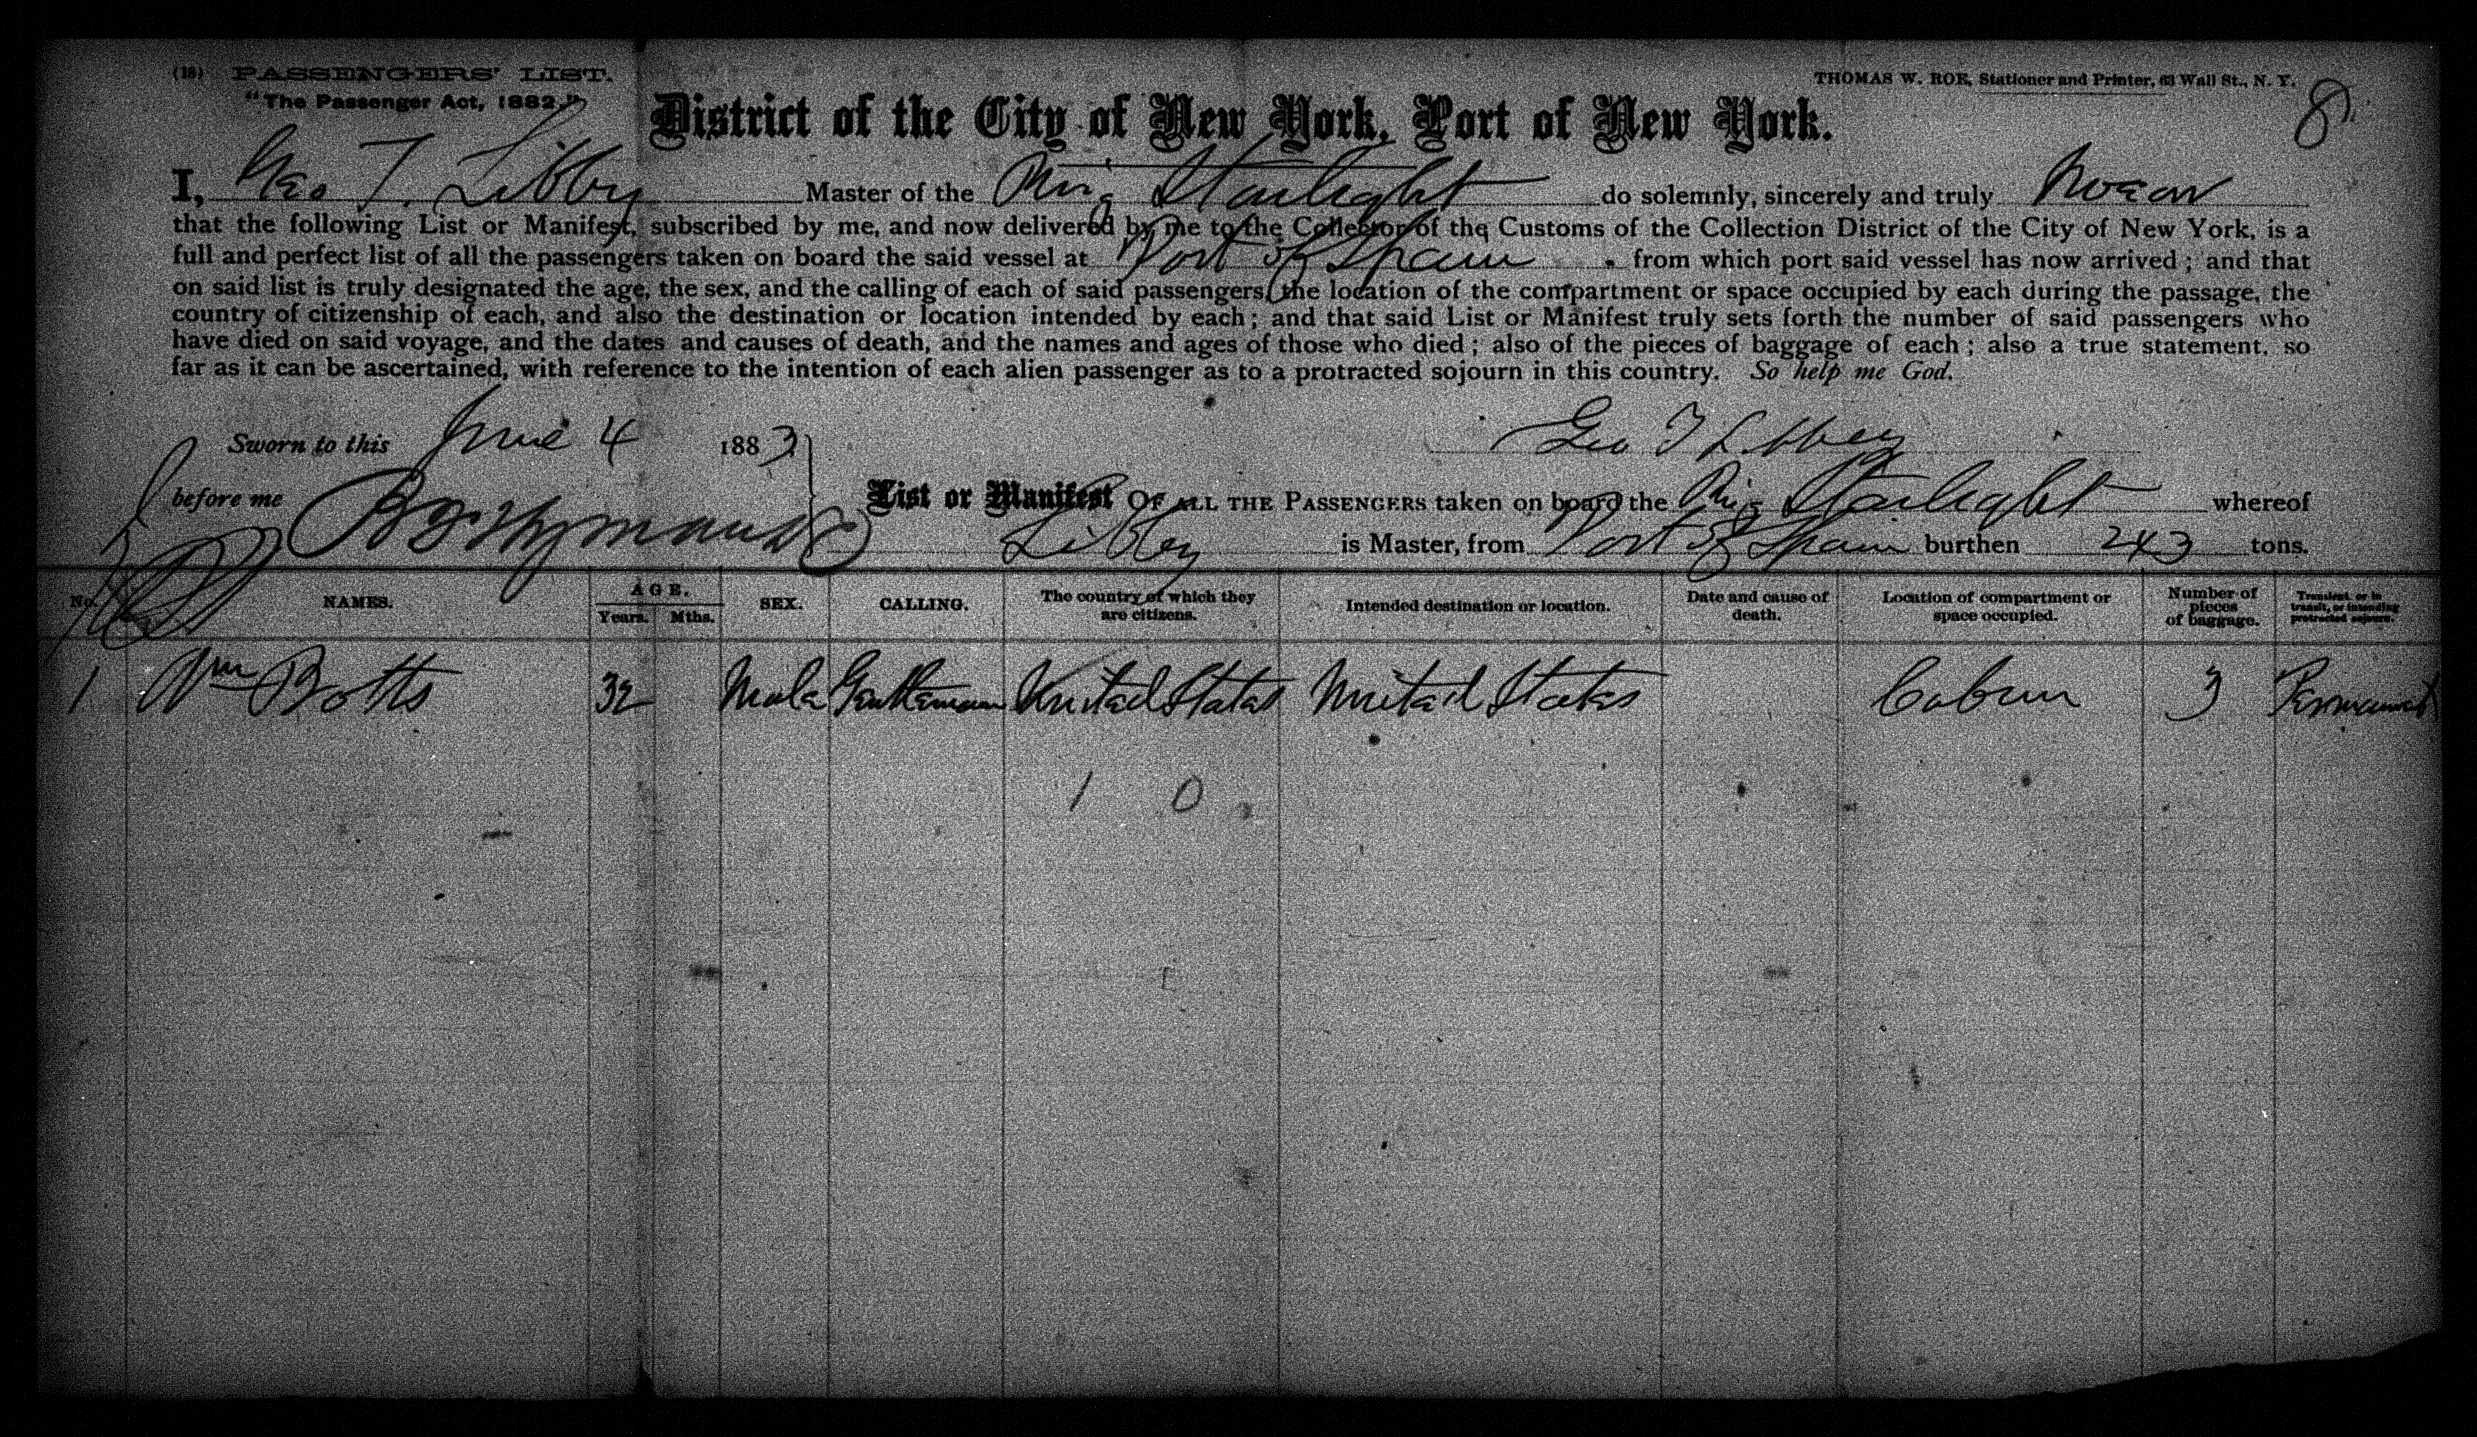 (18) PASSENGERS' LIST.
"The Passenger Act, 1882."
THOMAS W. ROE, Stationer and Printer, 63 Wall St., N. Y.
8
District of the City of New York, Port of New York.
I, Geo T. Libby Master of the Brig Starlight do solemnly, sincerely and truly swear
that the following List or Manifest, subscribed by me, and now delivered by me to the Collector of the Customs of the Collection District of the City of New York, is a
full and perfect list of all the passengers taken on board the said vessel at Port of Spain from which port said vessel has now arrived; and that
on said list is truly designated the age, the sex, and the calling of each of said passengers, the location of the compartment or space occupied by each during the passage, the
country of citizenship of each, and also the destination or location intended by each; and that said List or Manifest truly sets forth the number of said passengers who
have died on said voyage, and the dates and causes of death, and the names and ages of those who died; also of the pieces of baggage of each; also a true statement, so
far as it can be ascertained, with reference to the intention of each alien passenger as to a protracted sojourn in this country. So help me God.
Sworn to this June 4 1883
Geo T Libbey
before me
List or Manifest OF ALL THE PASSENGERS taken on board the Brig Starlight whereof
Libbey is Master, from Port of Spain burthen 243 tons.
No. NAMES. AGE. Years. Mths. SEX. CALLING. The country of which they are citizens. Intended destination or location. Date and cause of death. Location of compartment or space occupied. Number of pieces of baggage. Transient, or in transit, or intending protracted sojourn.
1 Wm Botts 32 Male Gentleman United States United States Cabin 3 Permanent
1 0